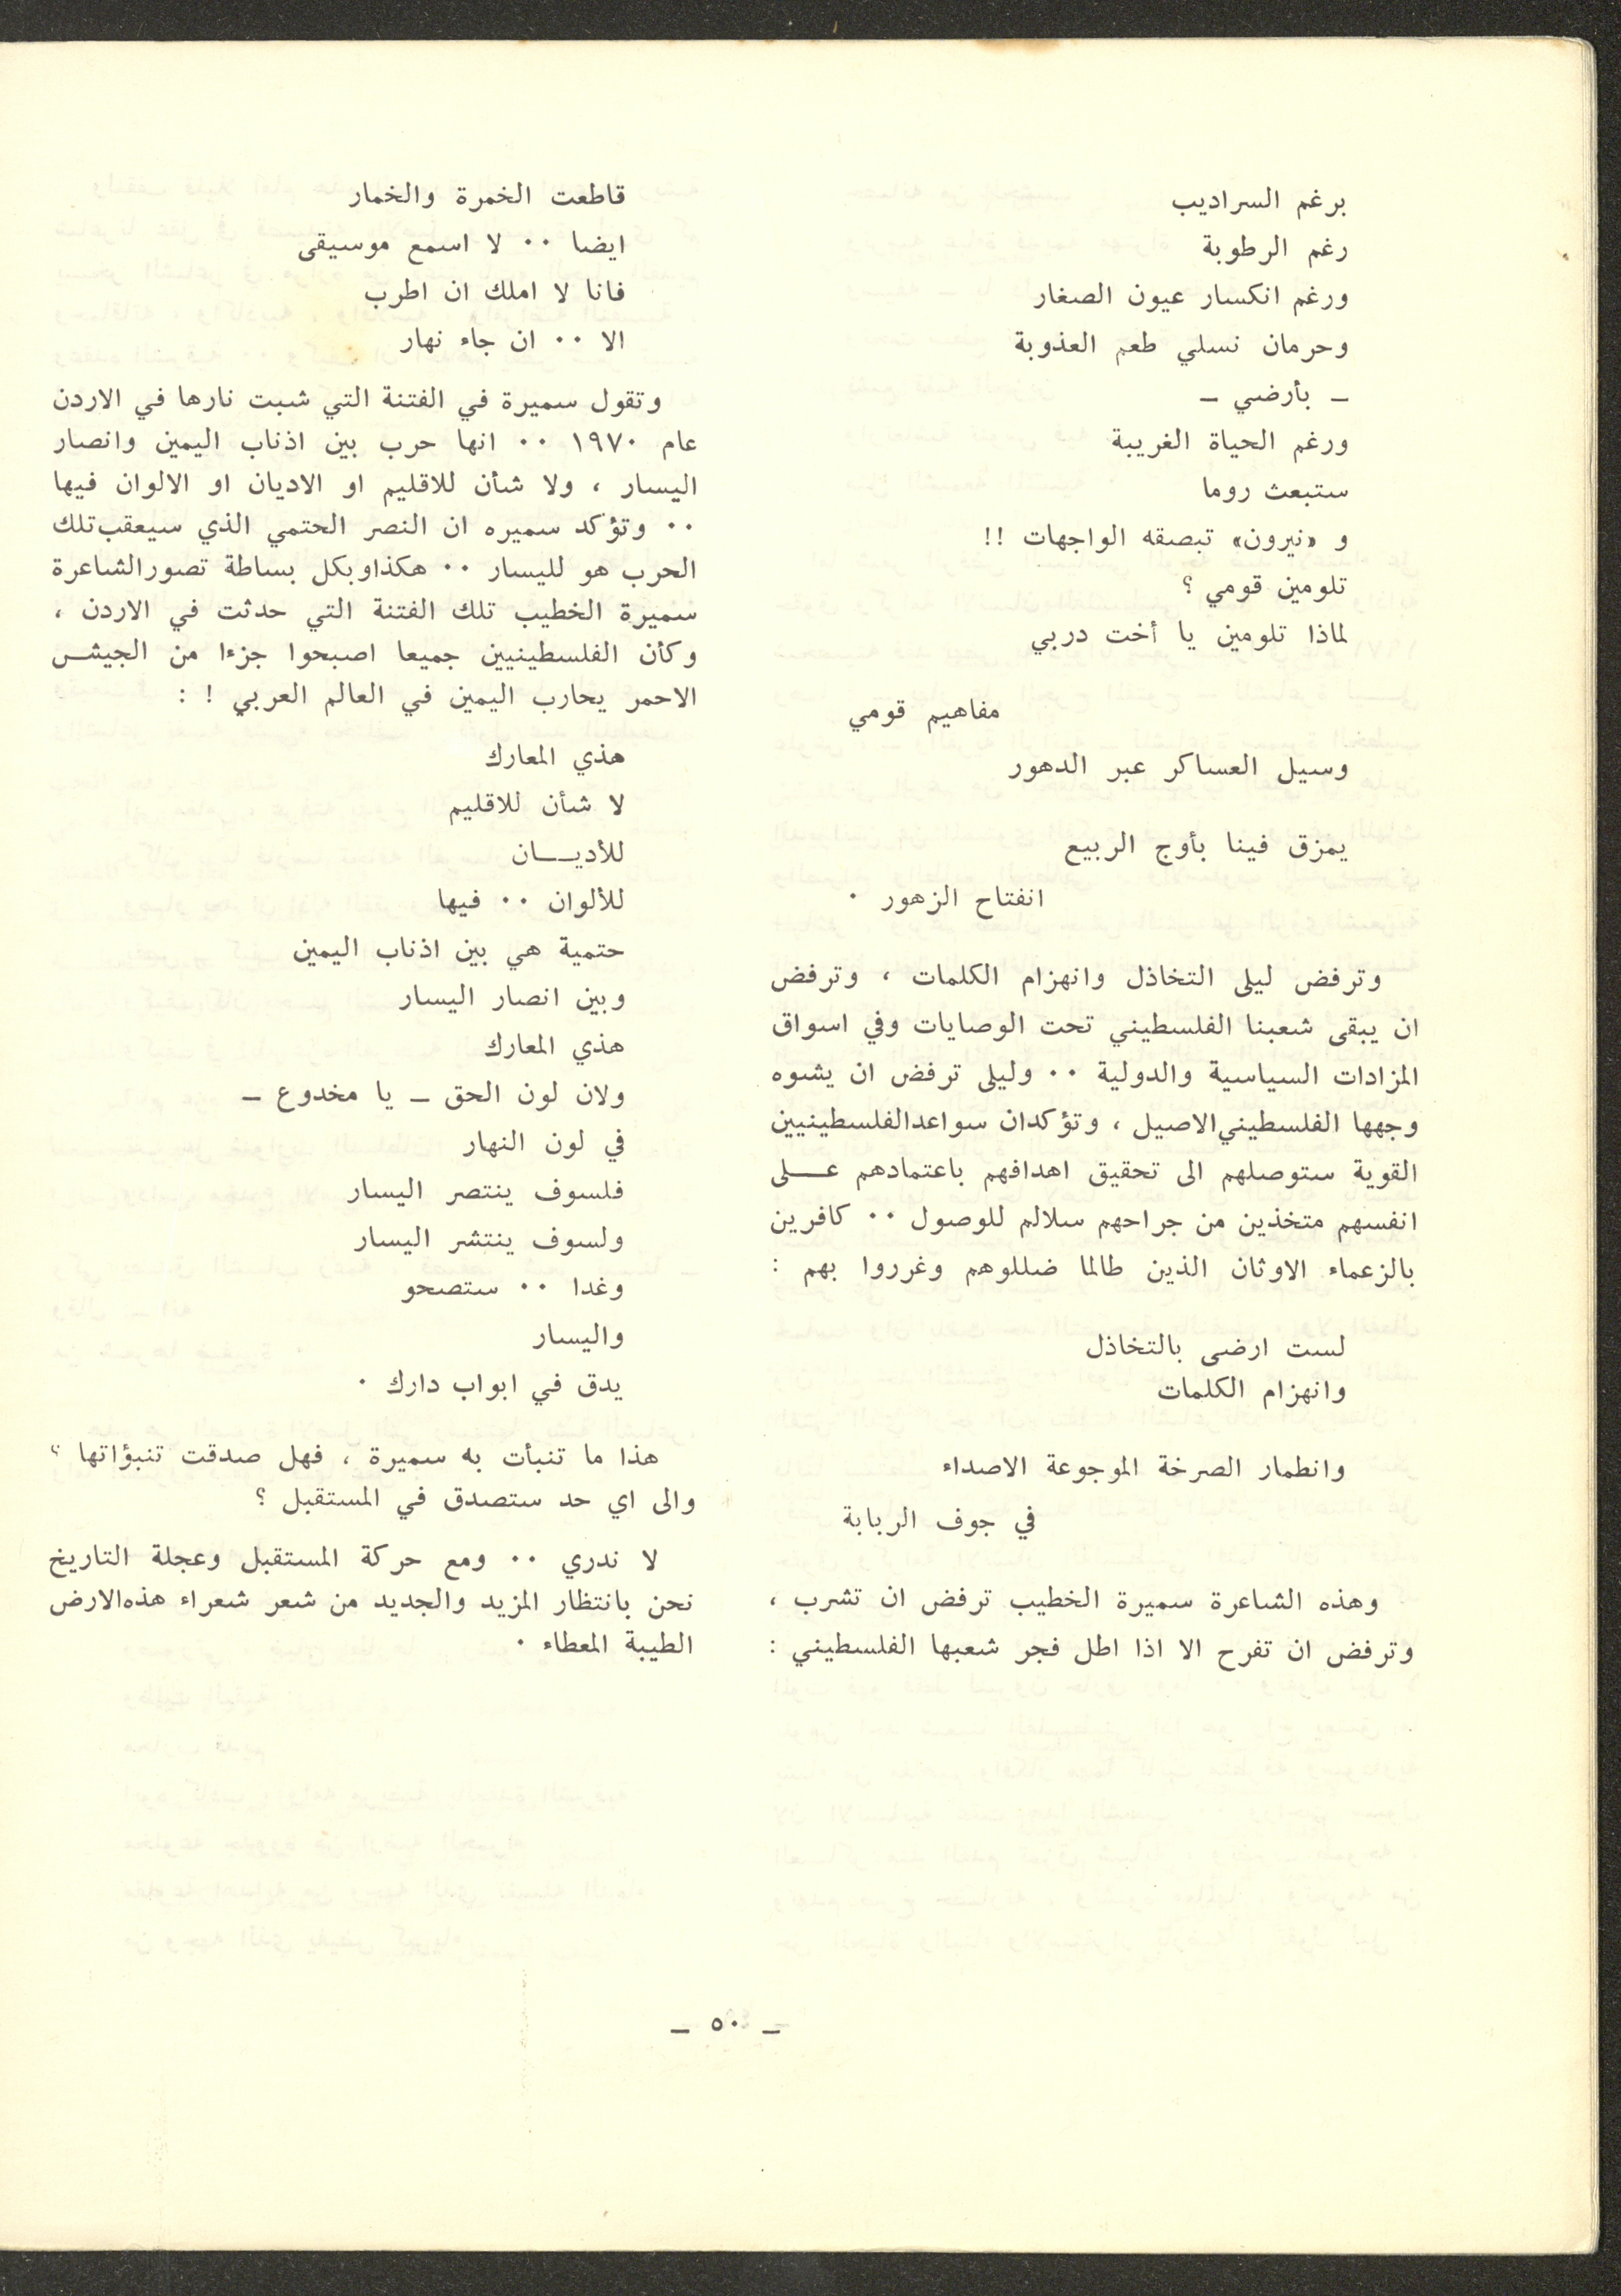 برغم السراديب
رغم الرطوبة
ورغم انكسار عيون الصغار
وحرمان نسلي طعم العذوبة
ـ بأرضي ـ
ورغم الحياة الغريبة
ستبعث روما
و «نيرون» تبصقه الواجهات !!
تلومين قومي ؟
لماذا تلومين يا أخت دربي
مفاهيم قومي
وسيل العساكر عبر الدهور
يمزق فينا بأوج الربيع
انفتاح الزهور ٠
وترفض ليلى التخاذل وانهزام الكلمات ، وترفض
ان يبقى شعبنا الفلسطيني تحت الوصايات وفي اسواق
المزادات السياسية والدولية ٠٠ وليلى ترفض ان يشوه
وجهها الفلسطيني الاصيل ، وتؤكدان سواعدالفلسطينيين
القوية ستوصلهم الى تحقيق اهدافهم باعتمادهم عـــلى
انفسهم متخذين من جراحهم سلالم للوصول ٠٠ كافرين
بالزعماء الاوثان الذين طالما ضللوهم وغرروا بهم :
لست ارضى بالتخاذل
وانهزام الكلمات
وانطمار الصرخة الموجوعة الاصداء
في جوف الربابة
وهذه الشاعرة سميرة الخطيب ترفض ان تشرب ،
وترفض ان تفرح الا اذا اطل فجر شعبها الفلسطيني :
قاطعت الخمرة والخمار
ايضا ٠٠ لا اسمع موسيقى
فانا لا املك ان اطرب
الا ٠٠ ان جاء نهار
وتقول سميرة في الفتنة التي شبت نارها في الاردن
عام ١٩٧٠ ٠٠ انها حرب بين اذناب اليمين وانصار
اليسار ، ولا شأن للاقليم او الاديان او الالوان فيها
٠٠ وتؤكد سميره ان النصر الحتمي الذي سيعقب تلك
الحرب هو لليسار ٠٠ هكذاوبكل بساطة تصورالشاعرة
سميرة الخطيب تلك الفتنة التي حدثت في الاردن ،
وكأن الفلسطينيين جميعا اصبحوا جزءا من الجيشـ
الاحمر يحارب اليمين في العالم العربي ! :
هذي المعارك
لا شأن للاقليم
للأديـــان
للألوان ٠٠ فيها
حتمية هي بين اذناب اليمين
وبين انصار اليسار
هذي المعارك
ولان لون الحق ـ يا مخدوع ـ
في لون النهار
فلسوف ينتصر اليسار
ولسوف ينتشر اليسار
وغدا ٠٠ ستصحو
واليسار
يدق في ابواب دارك ٠
هذا ما تنبأت به سميرة ، فهل صدقت تنبؤاتها ؟
والى اي حد ستصدق في المستقبل ؟
لا ندري ٠٠ ومع حركة المستقبل وعجلة التاريخ
نحن بانتظار المزيد والجديد من شعر شعراء هذه الارض
الطيبة المعطاء ٠
ـ ٥٠ ـ